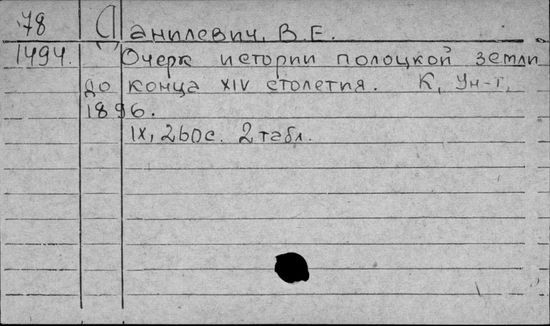 78 Данилевич, В.Е.
1494. Очерк истории полоцкой земли
до конца XIV столетия. К, Ун-т,
1896.
IX, 260с. 2 табл.